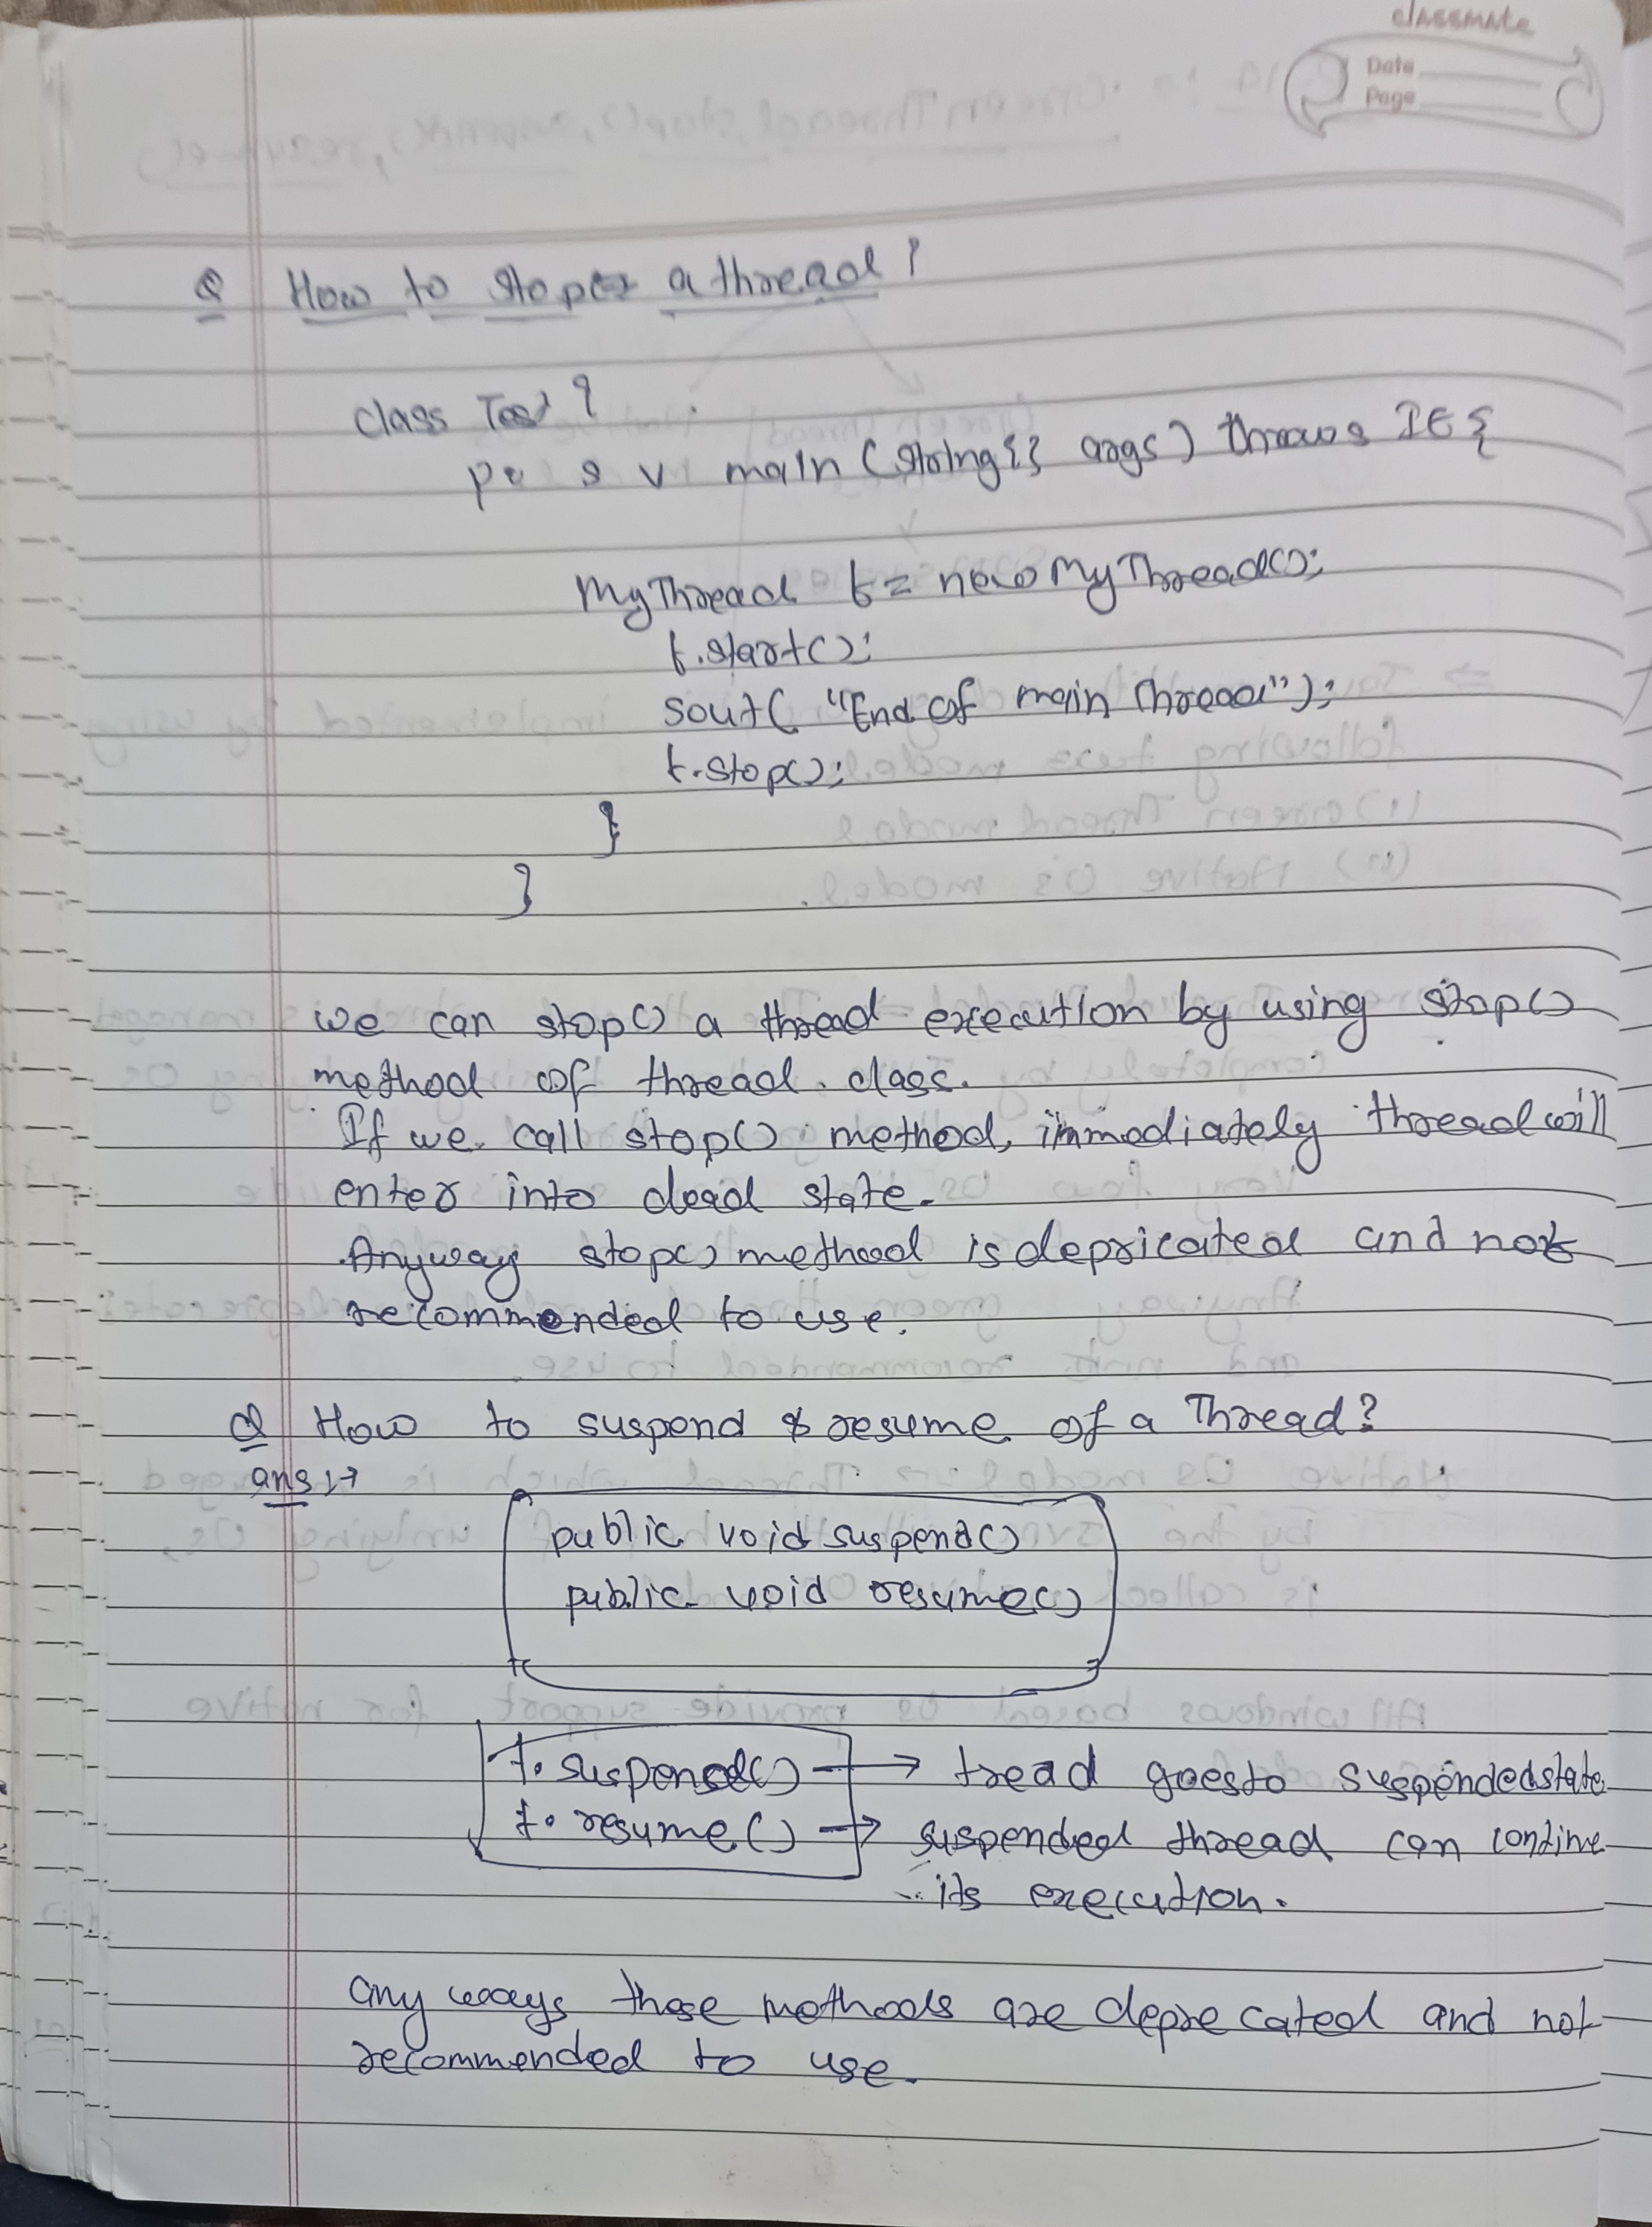 classmate
Date
Page
Q How to stop a thread?
class Test {
pu s v main (string{} args) throws IE {
MyThread t = new MyThread();
t.start();
sout( "End of main thread");
t.stop();
}
}
we can stop() a thread execution by using stop()
method of thread class.
If we call stop() method, immediately thread will
enter into dead state.
Anyway stop() method is depricated and not
recommended to use.
Q How to suspend & resume of a Thread?
ans:→
public void suspend()
public void resume()
t. suspend() → tread goes to suspended state
t. resume() → suspended thread can contine
its execution.
any ways these methods are deprecated and not
recommended to use.